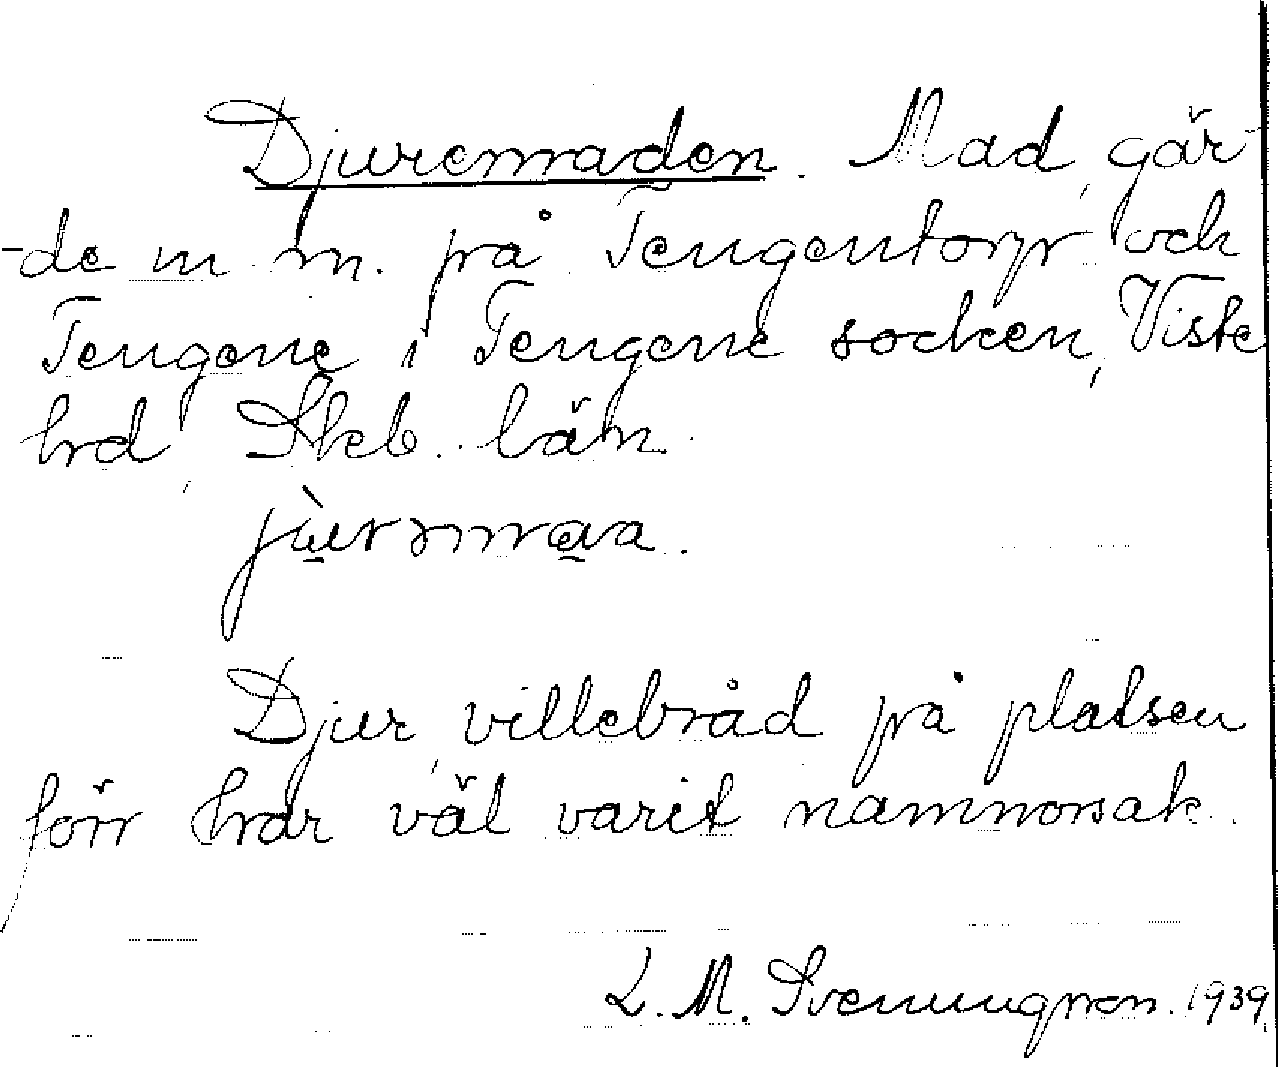 Djuremaden. Mad, gär-
-de m. m. på Tengentorp och
Tengene i Tengene socken, Viste
hrd, Skb. län.
Djur, villebråd på platsen
förr har väl varit namnorsak.
L. M. Svenungsson. 1939